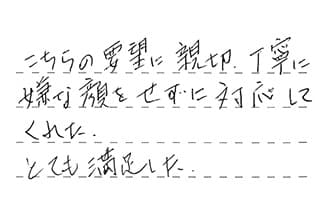 こちらの要望に親切.丁寧に
嫌な顔をせずに対応して
くれた.
とても満足した.